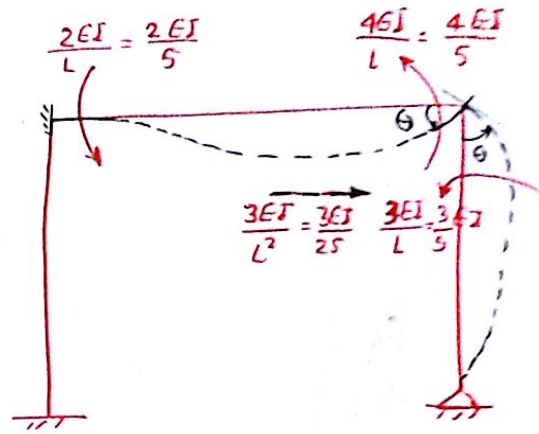 2EI/L = 2EI/5
4EI/L = 4EI/5
θ
θ
3EI/L² = 3EI/25
3EI/L = 3/5 EI